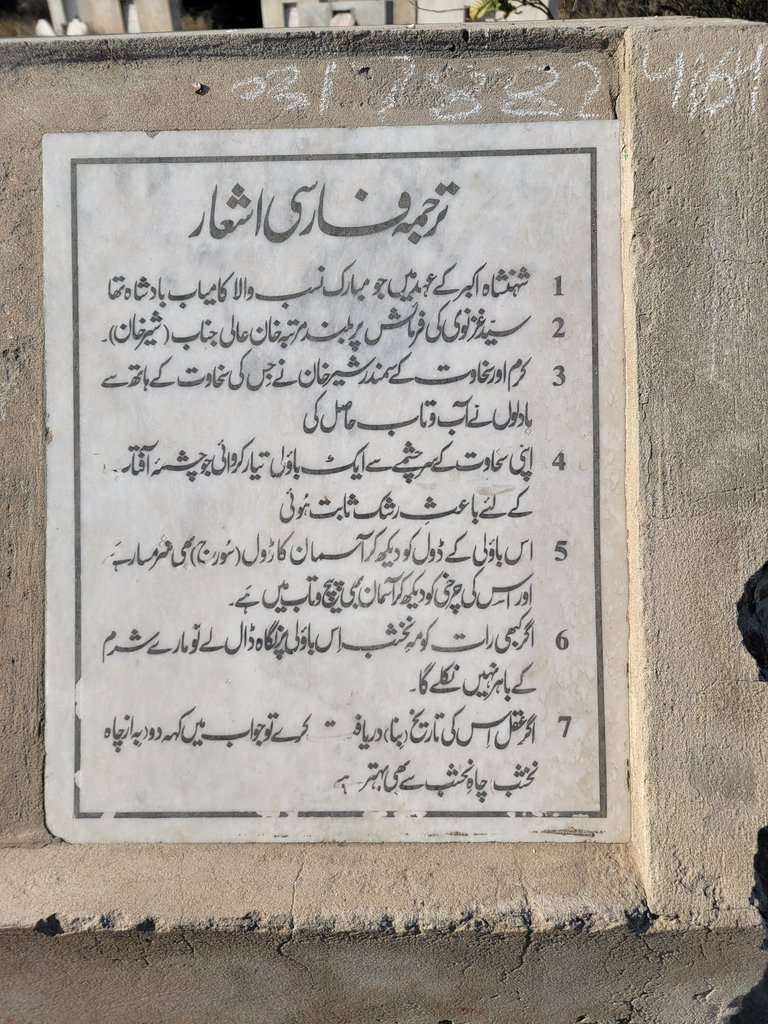 0317882 4164
ترجمہ فارسی اشعار
1 شہنشاہ اکبر کے عہد میں جو مبارک نسب والا کامیاب بادشاہ تھا
2 سیّد غزنوی کی فرمائش پر بلند مرتبہ خان عالی جناب (شیر خان)۔
3 کرم اور سخاوت کے سمندر شیر خان نے جس کی سخاوت کے ہاتھ سے
بادلوں نے آب و تاب حاصل کی
4 اپنی سخاوت کے سرچشمے سے ایک باؤلی تیار کروائی جو چشمۂ آفتاب
کے لئے باعثِ رشک ثابت ہُوئی
5 اس باؤلی کے ڈول کو دیکھ کر آسمان کا ڈول (سُورج) بھی شرمسار ہے
اور اس کی چرخی کو دیکھ کر آسمان بھی پیچ و تاب میں ہے۔
6 اگر کبھی رات کو مہ نخشب اِس باؤلی پر نگاہ ڈال لے تو مارے شرم
کے باہر نہیں نکلے گا۔
7 اگر عقل اِس کی تاریخ (بنا) دریافت کرے تو جواب میں کہہ دو (بہ از چاہ
نخشب چاہِ نخشب سے بھی بہتر ہے